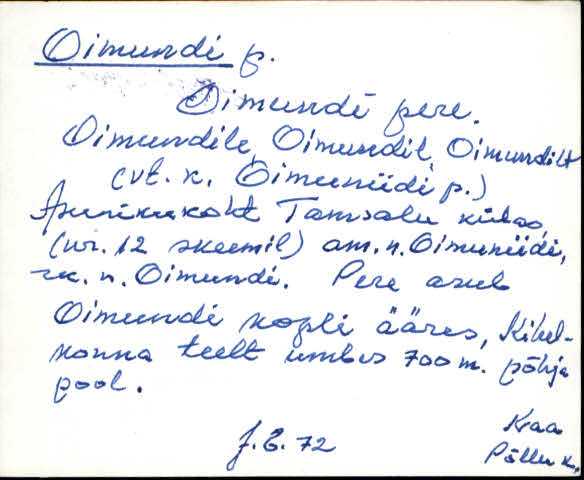 Oimundi p.
Oimundi pere.
Oimundile, Oimundil, Oimundilt
(vt. k. Oimuniidi p.)
Apurikukoht Tamsalu külas,
(nr. 12 skeemil) am. n. Oimuniidi,
rk. n. Oimundi. Pere asub
Oimundi kopli ääres, Kihel-
konna teelt umbes 700 m. põhja
pool.
Kraa
J. E. 72
Põllu k.